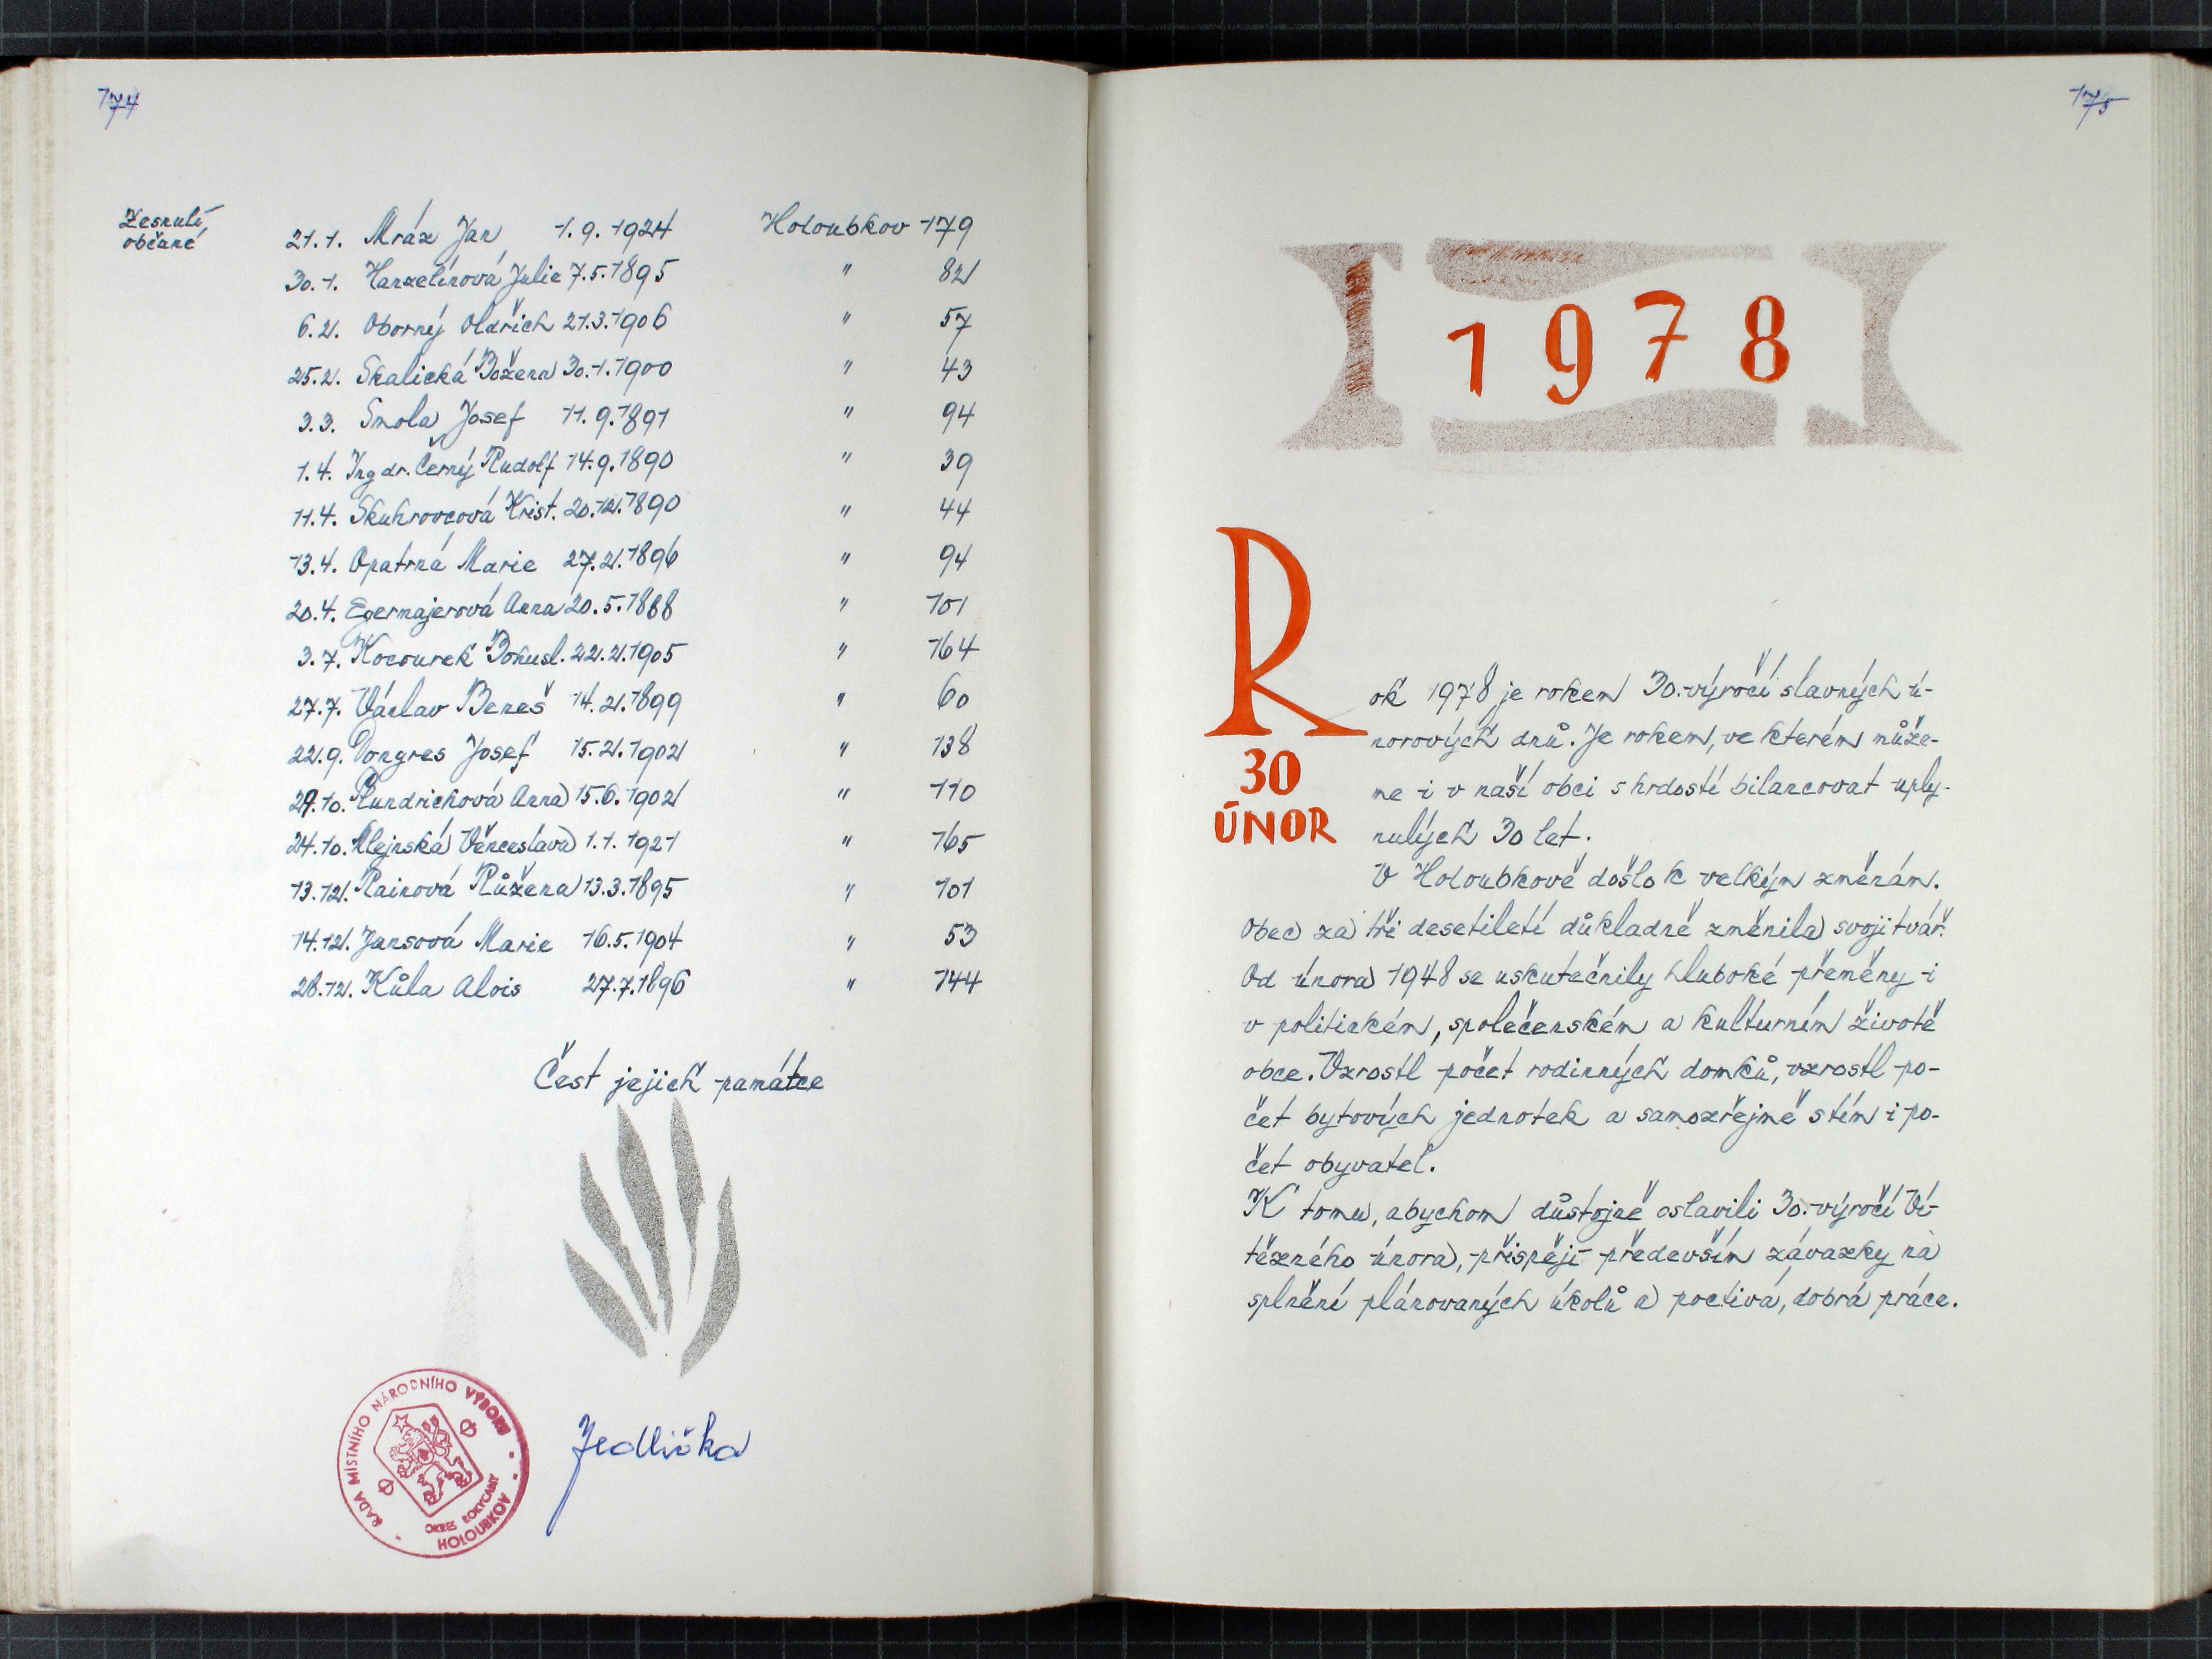 174
Zesnulí
občané
21.1. Mráz Jan 1.9.1924 Holoubkov 179
30.1. Hanzelínová Julie 7.5.1895 " 82
6.2. Oborný Oldřich 21.3.1906 " 57
25.2. Skalická Božena 30.1.1900 " 43
3.3. Smola Josef 11.9.1891 " 94
1.4. Ing dr. Černý Rudolf 14.9.1890 " 39
11.4. Skuhrovcová Krist. 20.12.1890 " 44
13.4. Opatrná Marie 27.2.1896 " 94
20.4. Egermajerová Anna 20.5.1888 " 101
3.7. Kocourek Bohusl. 22.2.1905 " 164
27.7. Václav Beneš 14.2.1899 " 60
22.9. Dongres Josef 15.2.1902 " 138
10. Rundrichová Anna 15.6.1902 " 110
24.10. Věnceslava 1.1.1921 " 165
13.12. Rainová Růžena 13.3.1895 " 101
14.12. Jansová Marie 16.5.1904 " 53
28.12. Kůla Alois 27.7.1896 " 144
Čest jejich památce
RADA MÍSTNÍHO NÁRODNÍHO VÝBORU
OKRES ROKYCANY
HOLOUBKOV
Jedlička
175
1978
Rok 1978 je rokem 30. výročí slavných ú-
norových dnů. Je rokem, ve kterém může-
30
me i v naší obci s hrdostí bilancovat uply-
ÚNOR
nulých 30 let.
V Holoubkově došlo k velkým změnám.
Obec za tři desetiletí důkladně změnila svoji tvář.
Od února 1948 se uskutečnily hluboké přeměny i
v politickém, společenském a kulturním životě
obce. Vzrostl počet rodinných domků, vzrostl po-
čet bytových jednotek a samozřejmě s tím i po-
čet obyvatel.
K tomu, abychom důstojně oslavili 30. výročí Ví-
tězného února, přispějí především závazky na
splnění plánovaných úkolů a poctivá, dobrá práce.